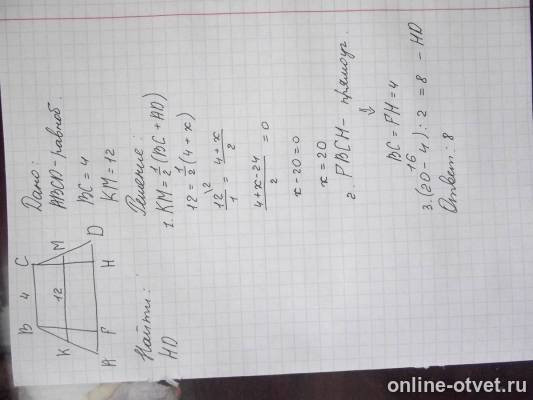 B 4 C
K 12 M
A P H D
Дано:
ABCD - равноб.
BC = 4
KM = 12
Найти:
HD
Решение:
1. KM = 1/2 (BC + AD)
12 = 1/2 (4 + x)
12\2 / 1 = 4 + x / 2
4 + x - 24 / 2 = 0
x - 20 = 0
x = 20
2. PBCH - прямоуг.
⇓
BC = PH = 4
16
3. (20 - 4) : 2 = 8 - HD
Ответ: 8
online-otvet.ru